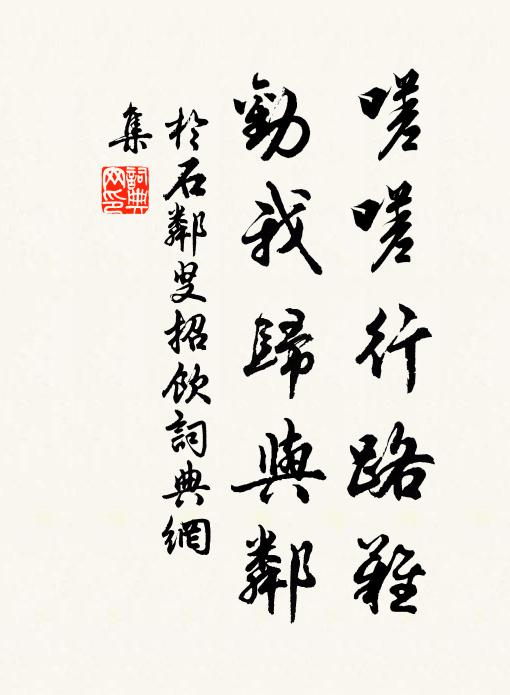 嗟嗟行路難
勸我歸與鄰
於石鄰叟招飲詞典網
集
詞典網印